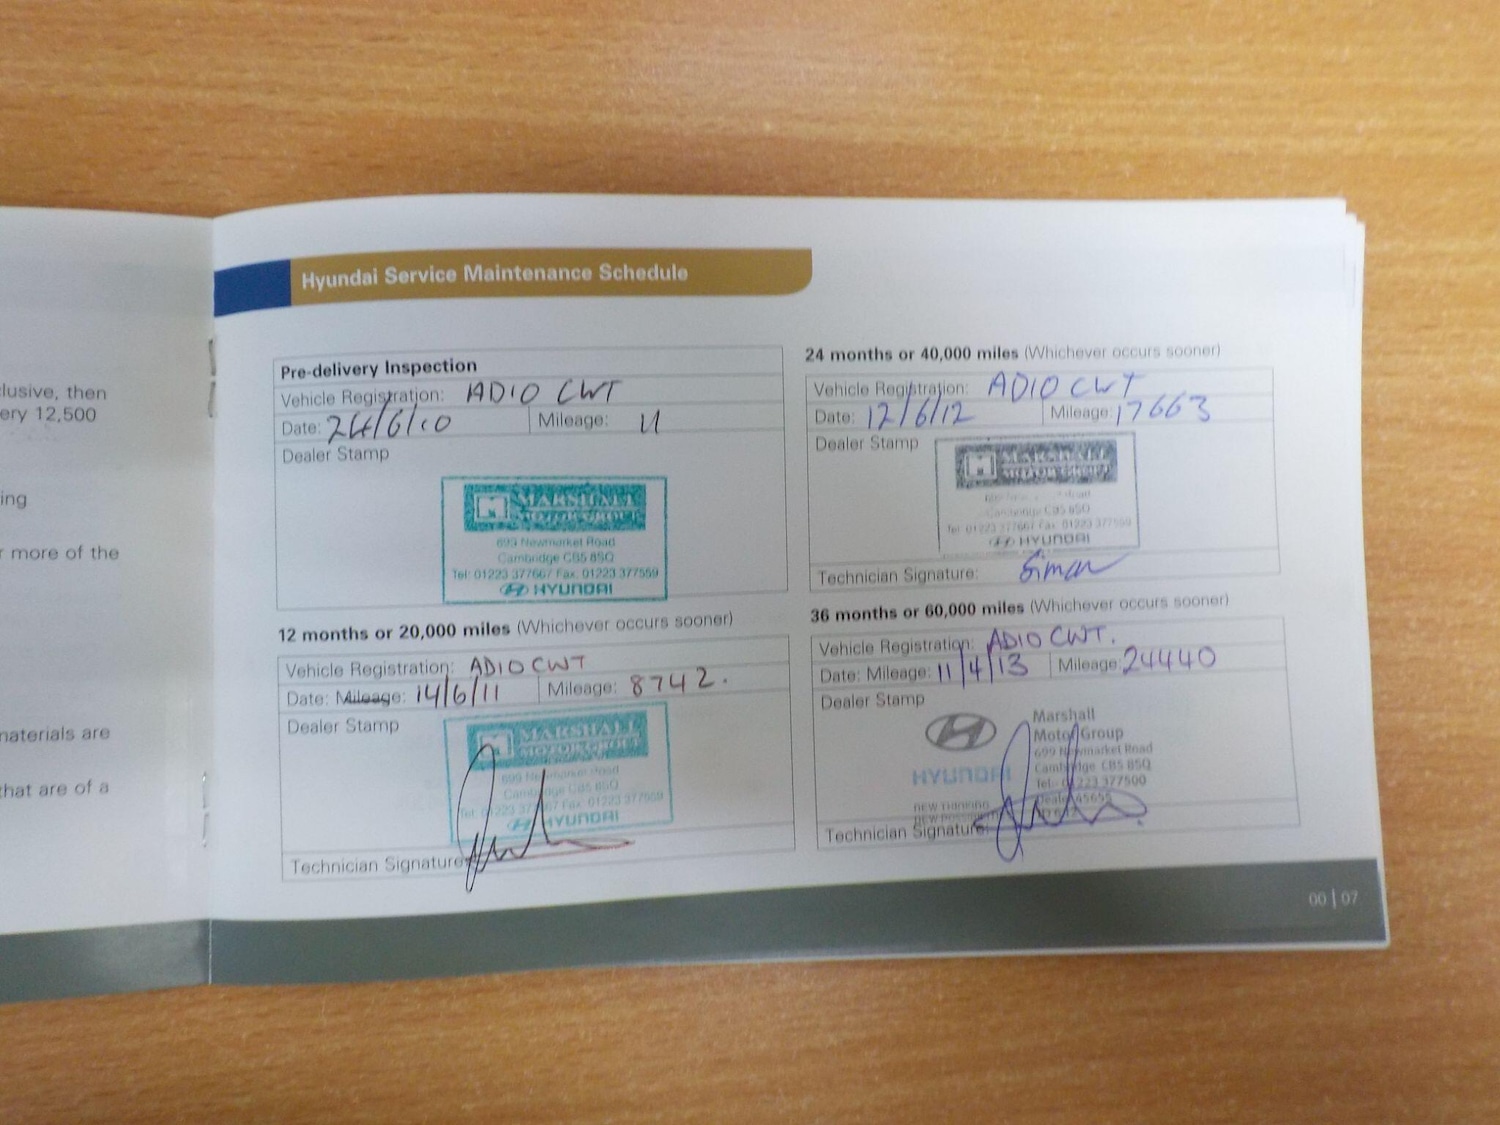 clusive, then
ery 12,500
ing
r more of the
naterials are
that are of a
Hyundai Service Maintenance Schedule
Pre-delivery Inspection
Vehicle Registration: AD10 CWT
Date: 24/6/10 Mileage: 11
Dealer Stamp
MARSHALL
MOTOR GROUP
699 Newmarket Road
Cambridge CB5 8SQ
Tel: 01223 377667 Fax: 01223 377559
HYUNDAI
12 months or 20,000 miles (Whichever occurs sooner)
Vehicle Registration: AD10 CWT
Date: Mileage: 14/6/11 Mileage: 8742.
Dealer Stamp
MARSHALL
MOTOR GROUP
699 Newmarket Road
Cambridge CB5 8SQ
Tel: 01223 377667 Fax: 01223 377559
HYUNDAI
Technician Signature:
24 months or 40,000 miles (Whichever occurs sooner)
Vehicle Registration: AD10 CWT
Date: 12/6/12 Mileage: 17663
Dealer Stamp
MARSHALL
MOTOR GROUP
Cambridge CB5 8SQ
Tel: 01223 377667 Fax: 01223 377559
HYUNDAI
Technician Signature:
36 months or 60,000 miles (Whichever occurs sooner)
Vehicle Registration: AD10 CWT.
Date: Mileage: 11/4/13 Mileage: 24440
Dealer Stamp
HYUNDAI
NEW THINKING.
Marshall
Motor Group
699 Newmarket Road
Cambridge CB5 8SQ
Tel:- 01223 377500
Technician Signature:
00 | 07